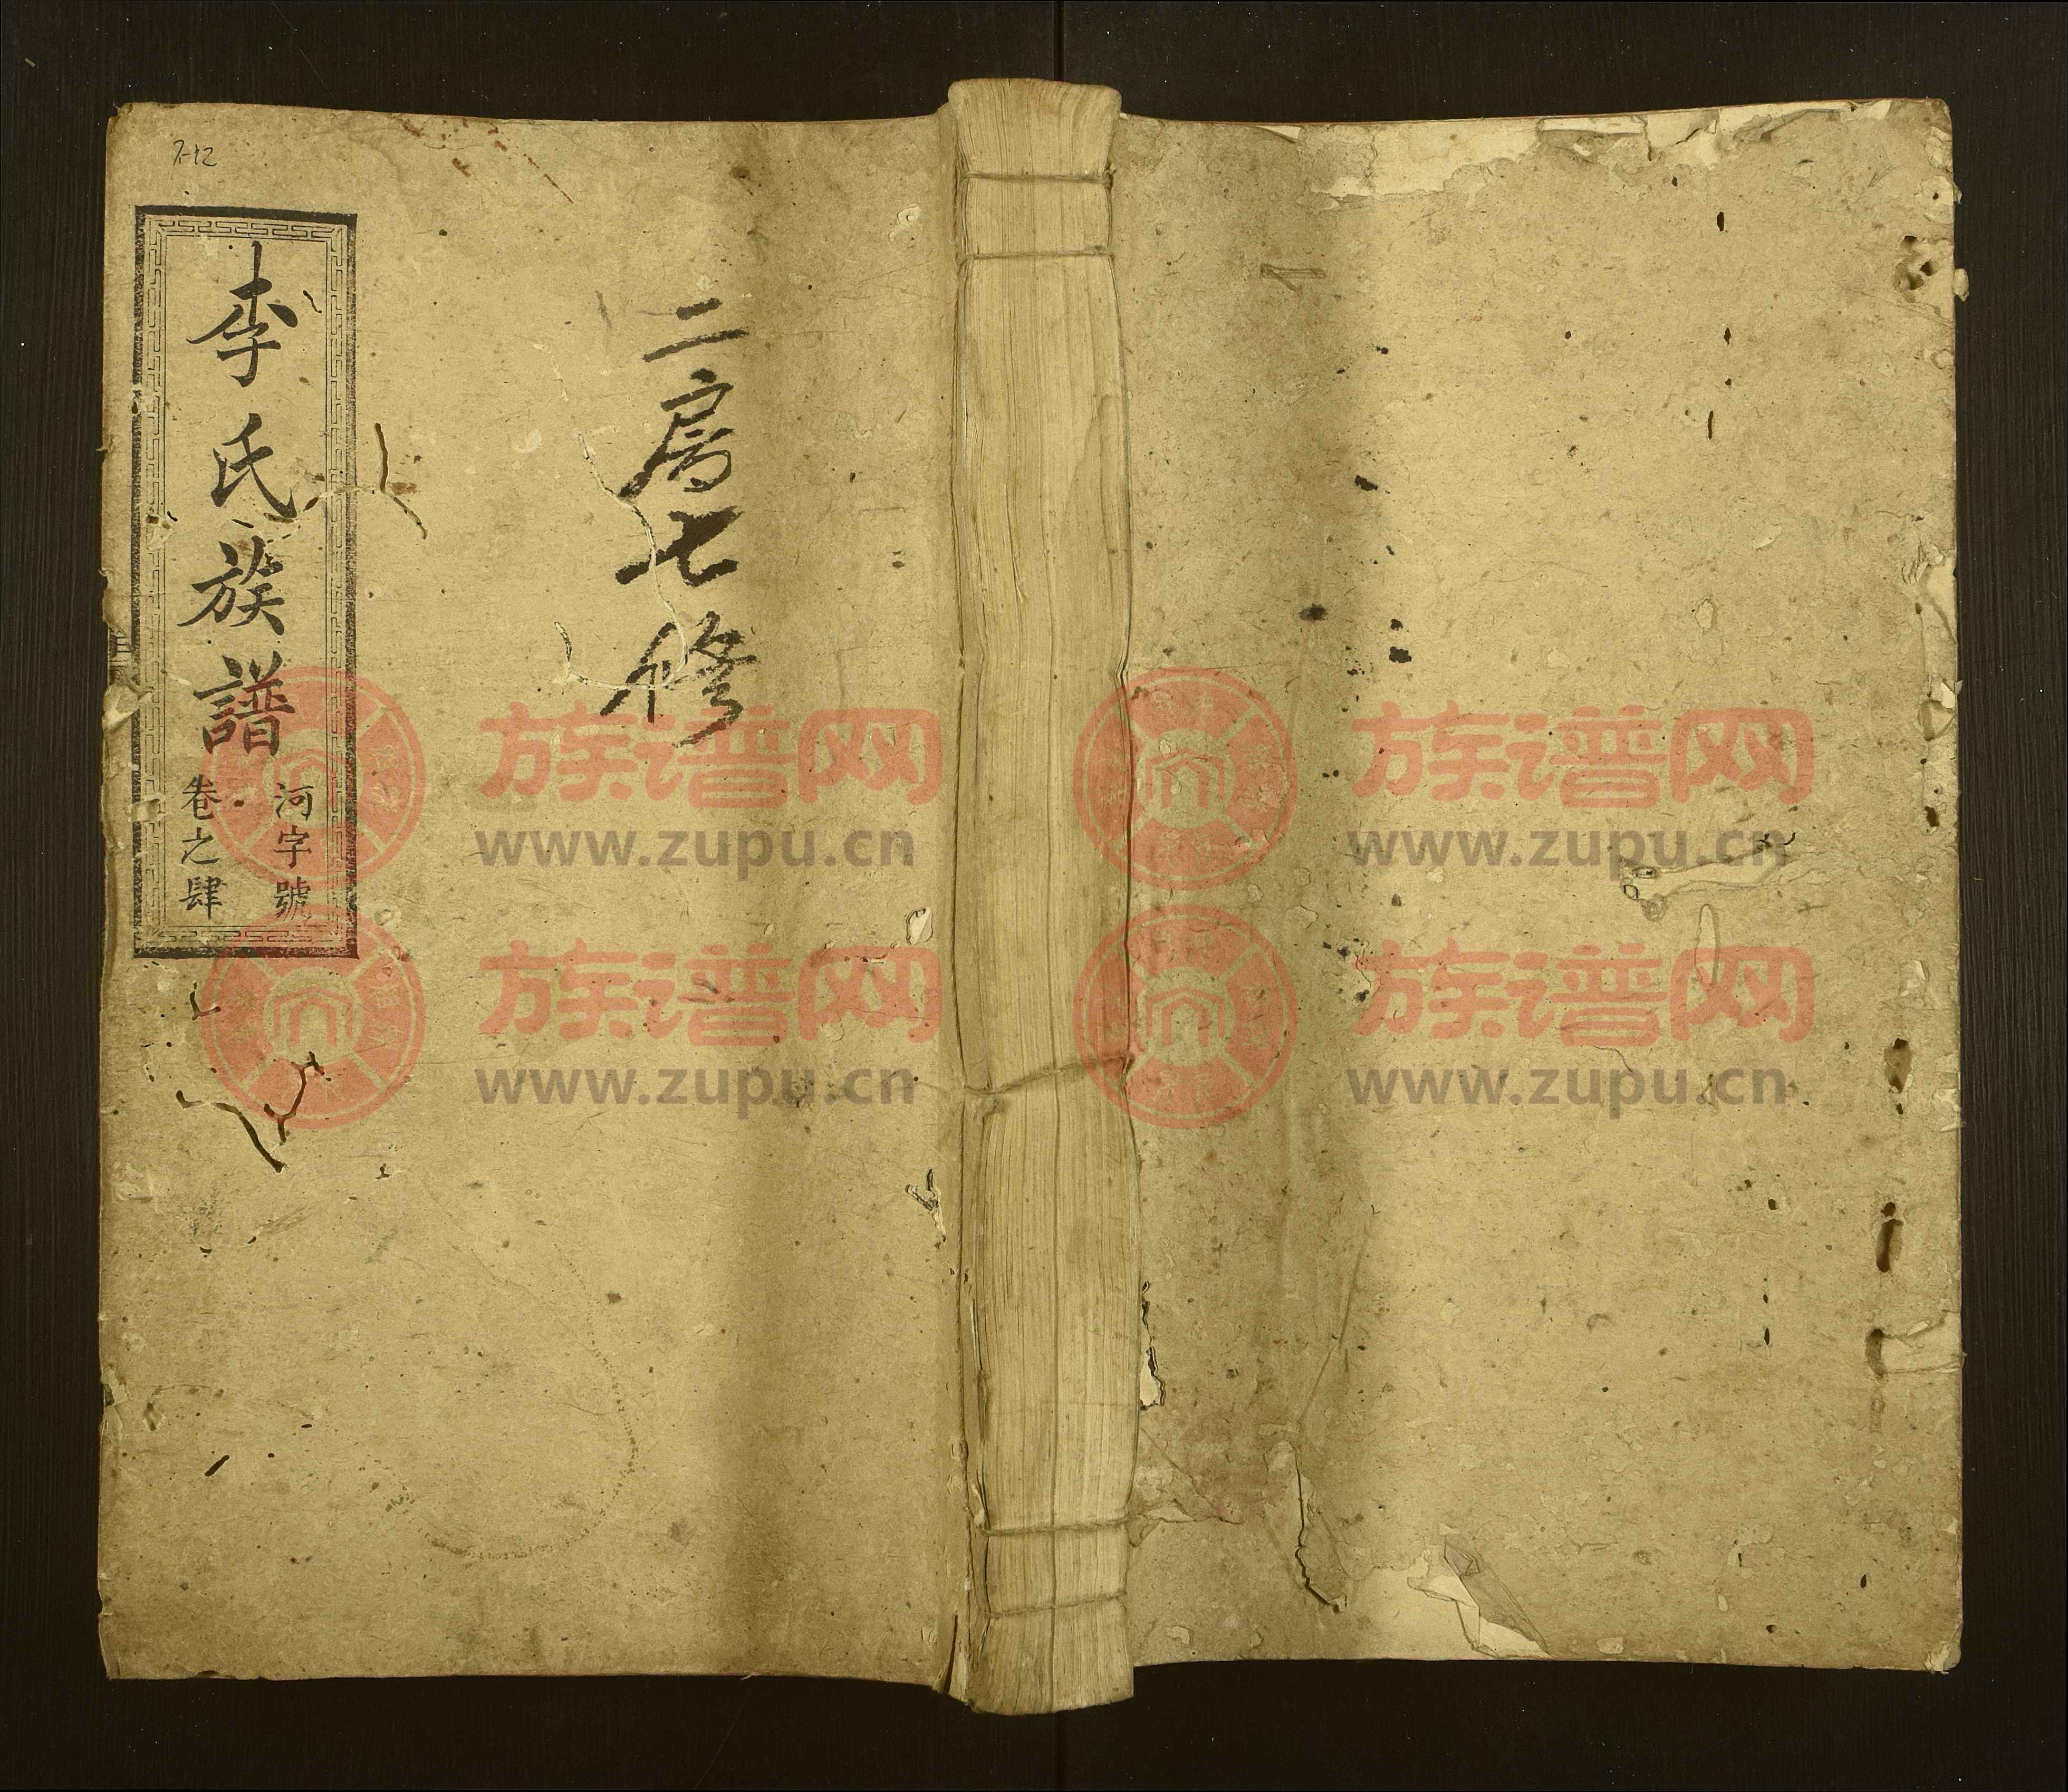 7-12
李氏族譜
河字號
卷之肆
二房七修
族谱网
www.zupu.cn
族谱网
www.zupu.cn
族谱网
www.zupu.cn
族谱网
www.zupu.cn